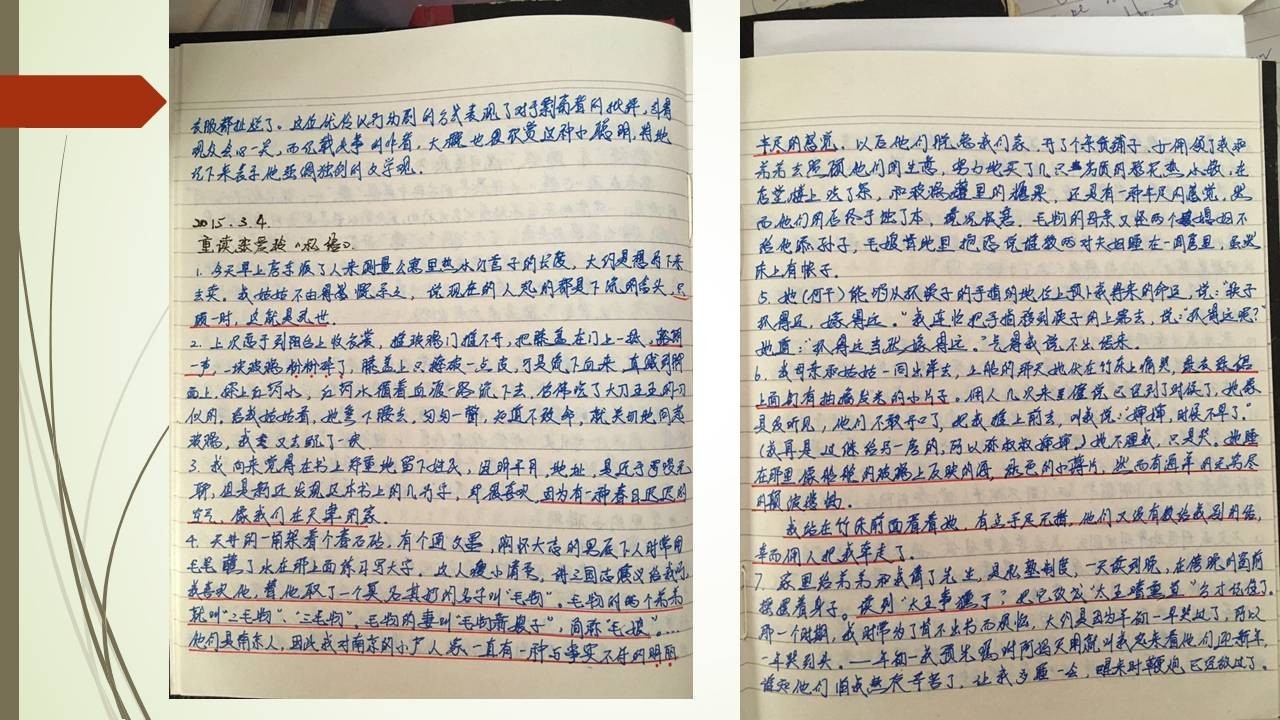 衣服都扯烂了。这位优伶以行为剧的方式表现了对于剽窃者的批评，
观众会心一笑，而记载此事的作者，大概也要欣赏这种小聪明，将他
记下来表示他强调独创的文学观。
2015.3.4.
重读张爱玲《私语》.
1. 今天早上房东派了人来测量公寓里热水汀管子的长度，大约是想拆下来
去卖。我姑姑不由得感慨系之，说现在的人起的都是下流的念头，只
顾一时，这就是乱世。
2. 上次急于到阳台上收衣裳，推玻璃门推不开，把膝盖在门上一抵，豁朗
一声，一块玻璃粉粉碎了，膝盖上只擦破一点皮，可是流下血来，直溅到脚
面上，搽上红药水，红药水循着血痕一路流下去，仿佛吃了大刀王五的一刀
似的。给我姑姑看，她弯下腰去，匆匆一瞥，知道不致命，就关切地问起
玻璃，我又去配了一块
3. 我向来觉得在书上郑重地留下姓氏，注明年月，地址，是近于啰唆无
聊，但是新近发现这本书上的几行字，却很喜欢，因为有一种春日迟迟的
空气，像我们在天津的家。
4. 天井的一角架着个青石砧，有个通文墨，胸怀大志的男底下人时常用
毛笔蘸了水在那上面练习写大字。这人瘦小清秀，讲三国志演义给我听，
我喜欢他，替他取了一个莫名其妙的名字叫“毛物”。毛物的两个弟弟
就叫“二毛物”、“三毛物”。毛物的妻叫“毛物新娘子”，简称“毛娘”。…
他们是南京人，因此我对南京的小户人家一直有一种与事实不符的明丽
丰足的感觉。以后他们脱离我们家，开了个杂货铺子，女佣领了我和
弟弟去照顾他们的生意，努力地买了几只劣质的彩花热水瓶，在
店堂楼上吃了茶，和玻璃罐里的糖果，还是有一种丰足的感觉。然
而他们的店终于蚀了本，境况极窘。毛物的母亲又怪两个媳妇都不
给他添孙子，毛娘背地里抱怨说谁教两对夫妇睡在一间房里，虽然
床上有帐子。
5. 她（何干）能够从抓筷子的手指的地位上预卜我将来的命运，说：“筷子
抓得近，嫁得远。”我连忙把手指移到筷子的上端去，说：“抓得远呢？”
她道：“抓得远当然嫁得远。”气得我说不出话来。
6. 我母亲和姑姑一同出洋去，上船的那天她伏在竹床上痛哭，绿衣绿裙
上面钉有抽搐发光的小片子。佣人几次来催说已经到了时候了，她像
是没听见，他们不敢开口了，把我推上前去，叫我说：“婶婶，时候不早了。”
（我算是过继给另一房的，所以称叔叔婶婶。）她不理我，只是哭。她睡
在那里像船舱的玻璃上反映的海，绿色的小薄片，然而有海洋的无穷尽
的颠波悲恸。
我站在竹床前面看着她，有点手足无措，他们又没有教给我别的话，
幸而佣人把我牵走了。
7. 家里给弟弟和我请了先生，是私塾制度，一天读到晚，在傍晚的窗前
摇摆着身子。读到“太王事獯于”，把它改成“太王嗜熏鱼”方才记住了。
那一个时期，我时常为了背不出书而烦恼，大约是因为年初一早哭过了，所以
一年哭到头。——年初一我预先嘱咐阿妈天明就叫我起来看他们迎新年，
谁知他们怕我熬夜辛苦了，让我多睡一会，醒来时鞭炮已经放过了。